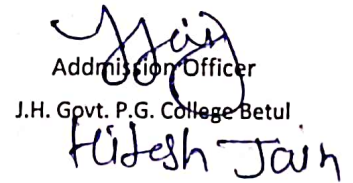 Addmission Officer
J.H. Govt. P.G. College Betul
Hitesh Jain